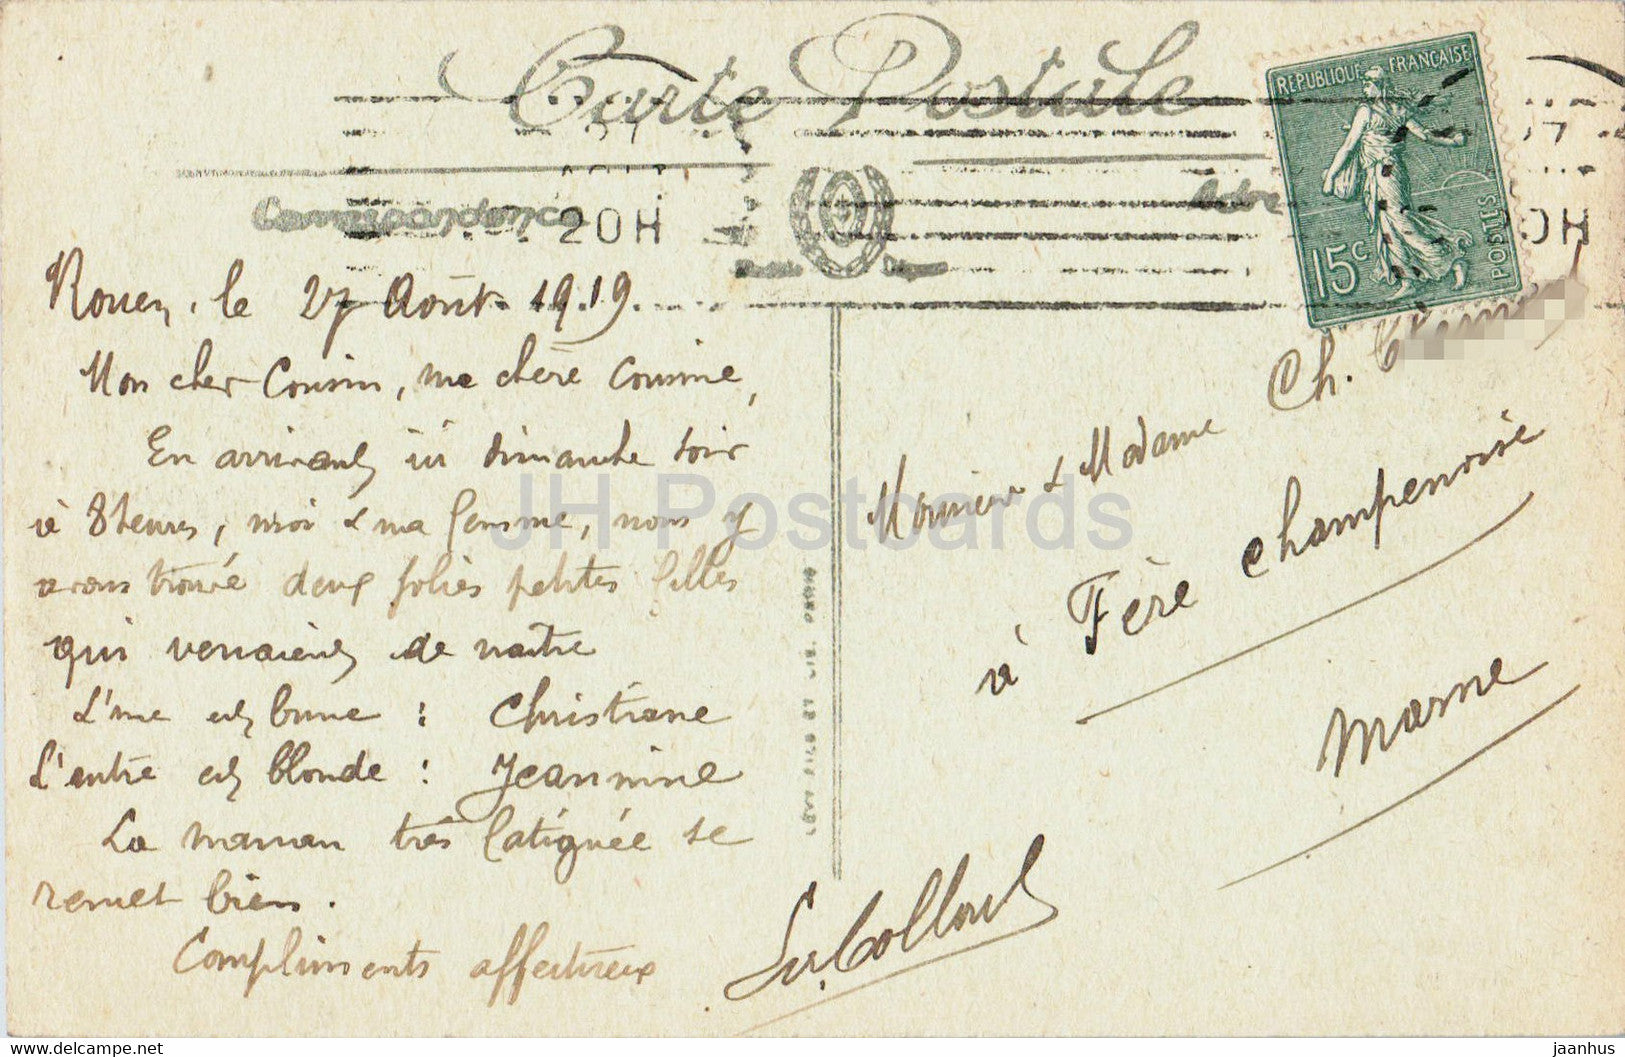 Carte Postale
Correspondance
20H
RÉPUBLIQUE FRANÇAISE
15c
POSTES
Rouen, le 27 Août 1919.
Mon cher Cousin, ma chère Cousine,
En arrivant ici dimanche soir
à 8 heures, moi & ma femme, nous y
avons trouvé deux jolies petites filles
qui venaient de naître
L'une est brune : Christiane
L'autre est blonde : Jeannine
La maman très fatiguée se
remet bien.
Compliments affectueux
Monsieur & Madame Ch.
à Fère Champenoise
Marne
JH Postcards
www.delcampe.net
jaanhus